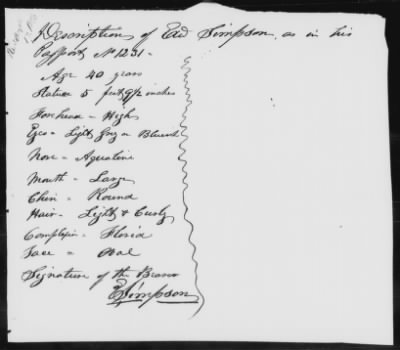 Description of Ed Simpson, as in his
Passport No 1231 -
Age 40 years
Stature 5 feet 9 1/2 inches
Forehead - High
Eyes - Light Grey or Blueish
Nose - Aquiline
Mouth - Large
Chin - Round
Hair - Light & Curly
Complexion - Florid
Face - Oval
Signature of the Bearer
E Simpson